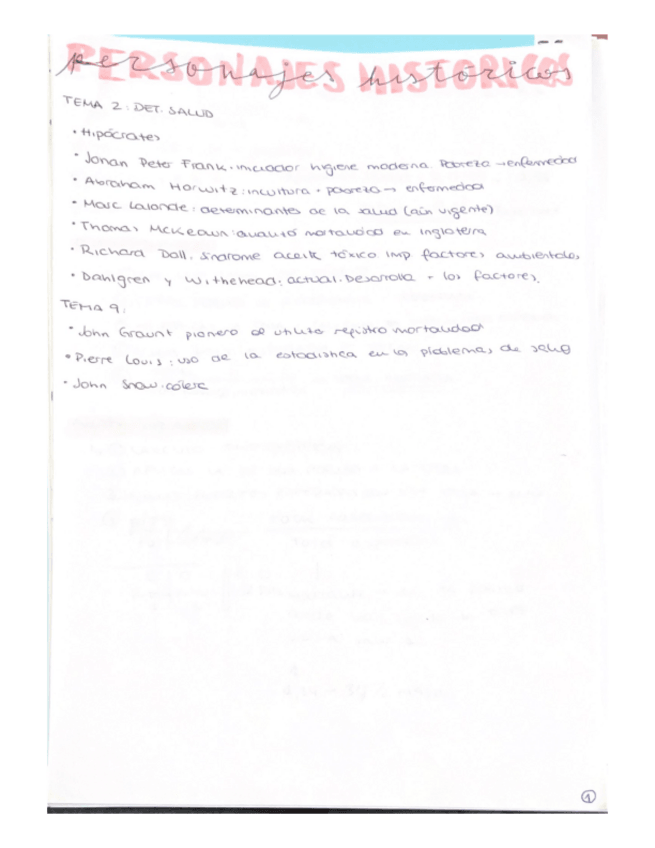 personajes históricos
TEMA 2: DET. SALUD
• Hipócrates
• Johan Peter Frank: iniciador higiene moderna. Pobreza → enfermedad
• Abraham Horwitz: incultura + pobreza → enfermedad
• Marc Lalonde: determinantes de la salud (aún vigente)
• Thomas McKeown: mortalidad en Inglaterra
• Richard Doll: síndrome aceite tóxico imp factores ambientales
• Dahlgren y Withehead: actual. Desarrolla + los factores.
TEMA 9:
• John Graunt pionero utilizó registro mortalidad
• Pierre Louis: uso de la estadística en los problemas de salud
• John Snow: cólera
1